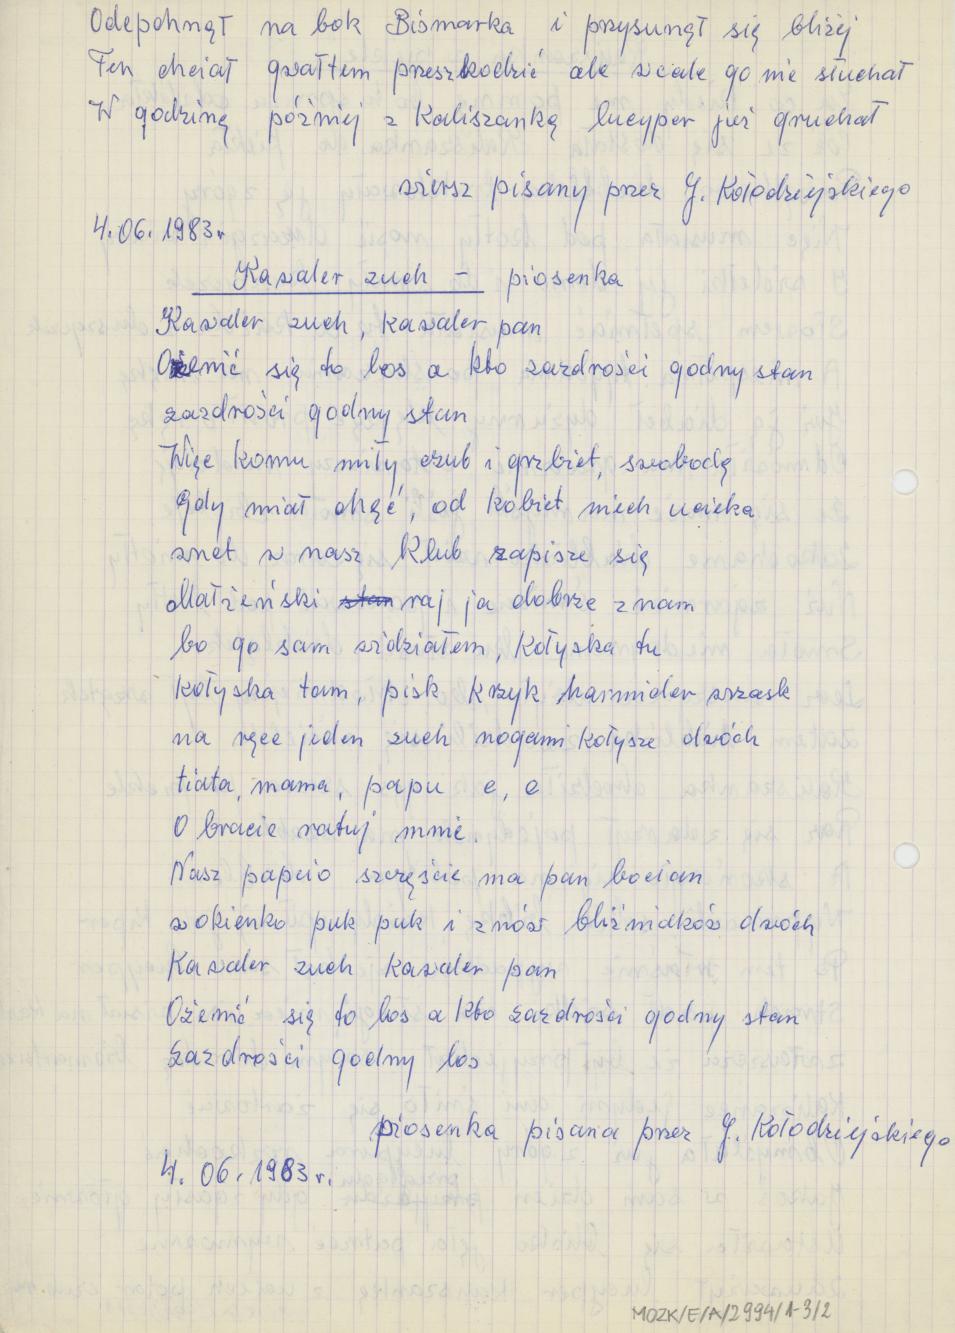 Odepchnął na bok Bismarka i przysunął się bliżej
Ten chciał gwałtem przeszkodzić ale wcale go nie słuchał
W godzinę później z Kaliszanką lucyper już gruchał
wiersz pisany przez G. Kołodziejskiego
4.06.1983r
Kawaler zuch – piosenka
Kawaler zuch, kawaler pan
Ożenić się to los a kto zazdrości godny stan
zazdrości godny stan
Więc komu miły czub i grzbiet, swobodę
gdy miał chęć, od kobiet, niech ucieka
wnet w nasz klub zapisze się
Małżeński stan raj ja dobrze znam
bo go sam widziałem, kołyska tu
kołyska tam, pisk krzyk, harmider wrzask
na ręce jeden zuch nogami kołysze dwóch
tiata, mama, papu e, e
O bracie ratuj mnie.
Nasz papcio szczęście ma pan bocian
w okienko puk puk i znów bliźniaków dwóch
Kawaler zuch kawaler pan
Ożenić się to los a kto zazdrości godny stan
Zazdrości godny los
piosenka pisana przez G. Kołodziejskiego
4. 06. 1983r.
MOZK/E/A/2994/1-3/2